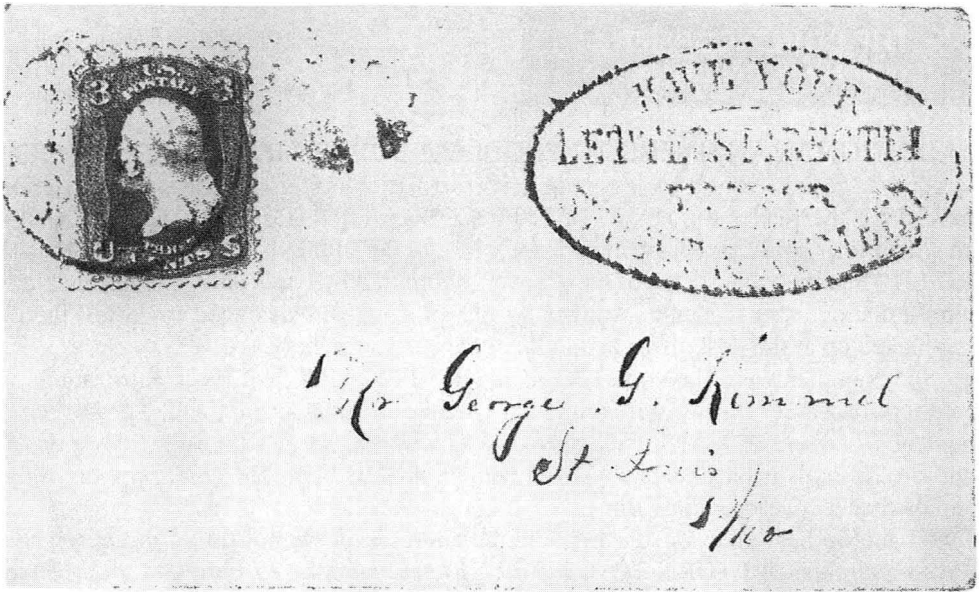 U.S.
POSTAGE
3 3
CENTS
HAVE YOUR
LETTERS DIRECTED
TO YOUR
STREET & NUMBER
Mr George. G. Kimmel
St Louis
Mo